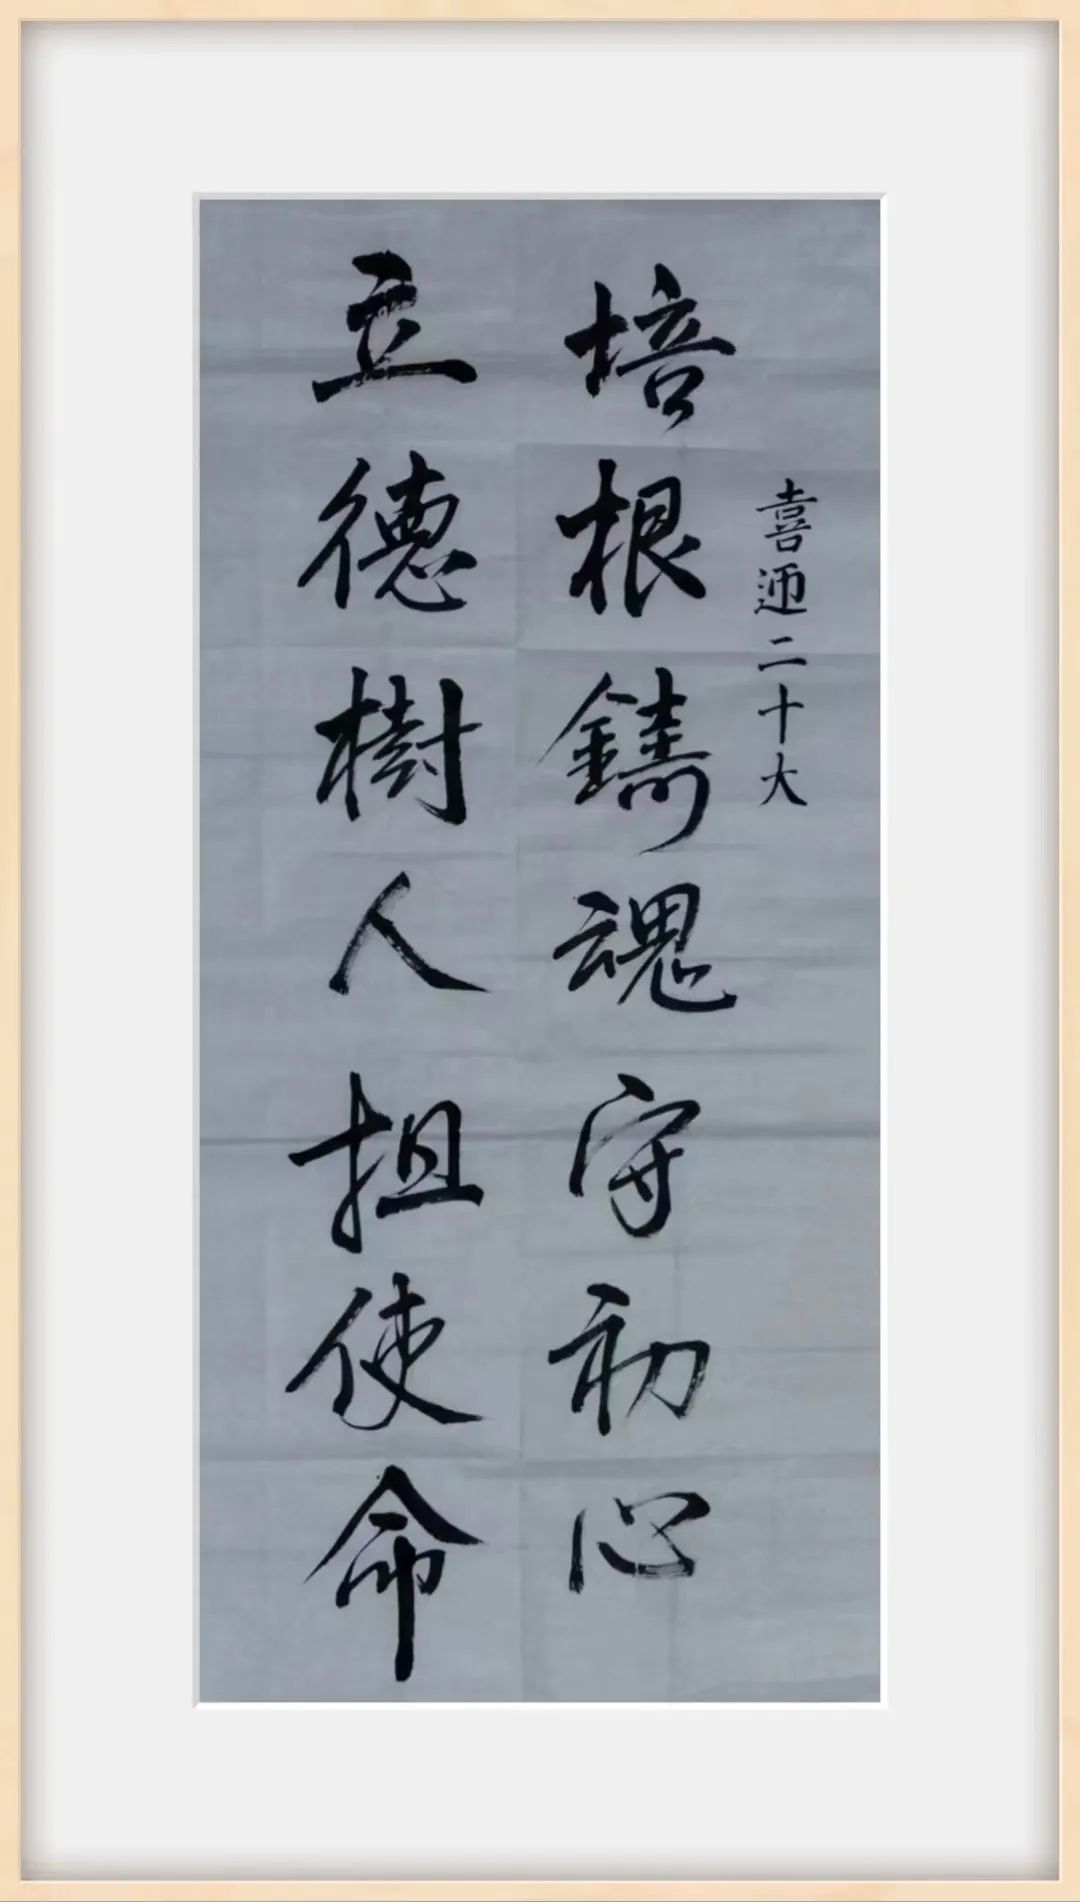 喜迎二十大
培根鑄魂守初心
立德樹人担使命